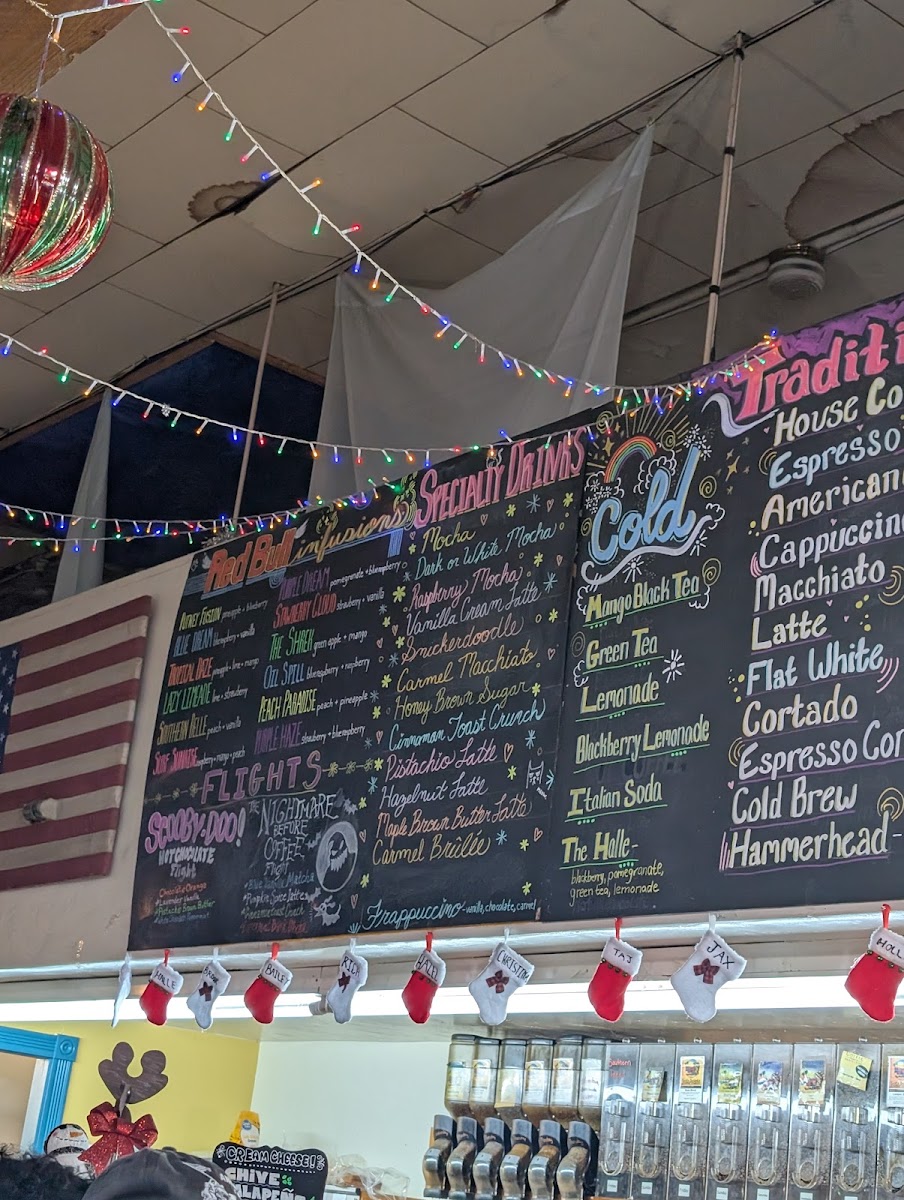 Red Bull infusions
PUTNEY FUSION pineapple + blueberry
BLUE DREAM blueberry + vanilla
TROPICAL DAZE pineapple + lime + mango
LADY LIMEADE lime + strawberry
SOUTHERN BELLE peach + vanilla
SURF SUNRISE raspberry + mango + peach
PURPLE DREAM pomegranate + blueraspberry
STRAWBERRY CLOUD strawberry + vanilla
THE SHREK green apple + mango
OIL SPILL blueraspberry + raspberry
PEACH PARADISE peach + pineapple
PURPLE HAZE strawberry + blueraspberry
FLIGHTS
SCOOBY-DOO!
HOT CHOCOLATE
Flight
Chocolate Orange
Lavender Vanilla
Pistachio Brown Butter
THE NIGHTMARE
BEFORE
COFFEE
FLIGHT
Pumpkin Spice Latte
SPECIALTY DRINKS
Mocha
Dark or White Mocha
Raspberry Mocha
Vanilla Cream Latte
Snickerdoodle
Carmel Macchiato
Honey Brown Sugar
Cinnamon Toast Crunch
Pistachio Latte
Hazelnut Latte
Maple Brown Butter Latte
Carmel Brûlée
Frappuccino - vanilla, chocolate, carmel
Cold
Mango Black Tea
Green Tea
Lemonade
Blackberry Lemonade
Italian Soda
The Halle -
blackberry, pomegranate,
green tea, lemonade
Traditi
House Co
Espresso
American
Cappuccino
Macchiato
Latte
Flat White
Cortado
Espresso Cor
Cold Brew
Hammerhead -
HALLE
BAILE
CHRISTINA
TAJ
JAX
HOLL
CREAM CHEESE!
CHIVE
JALAPEÑO